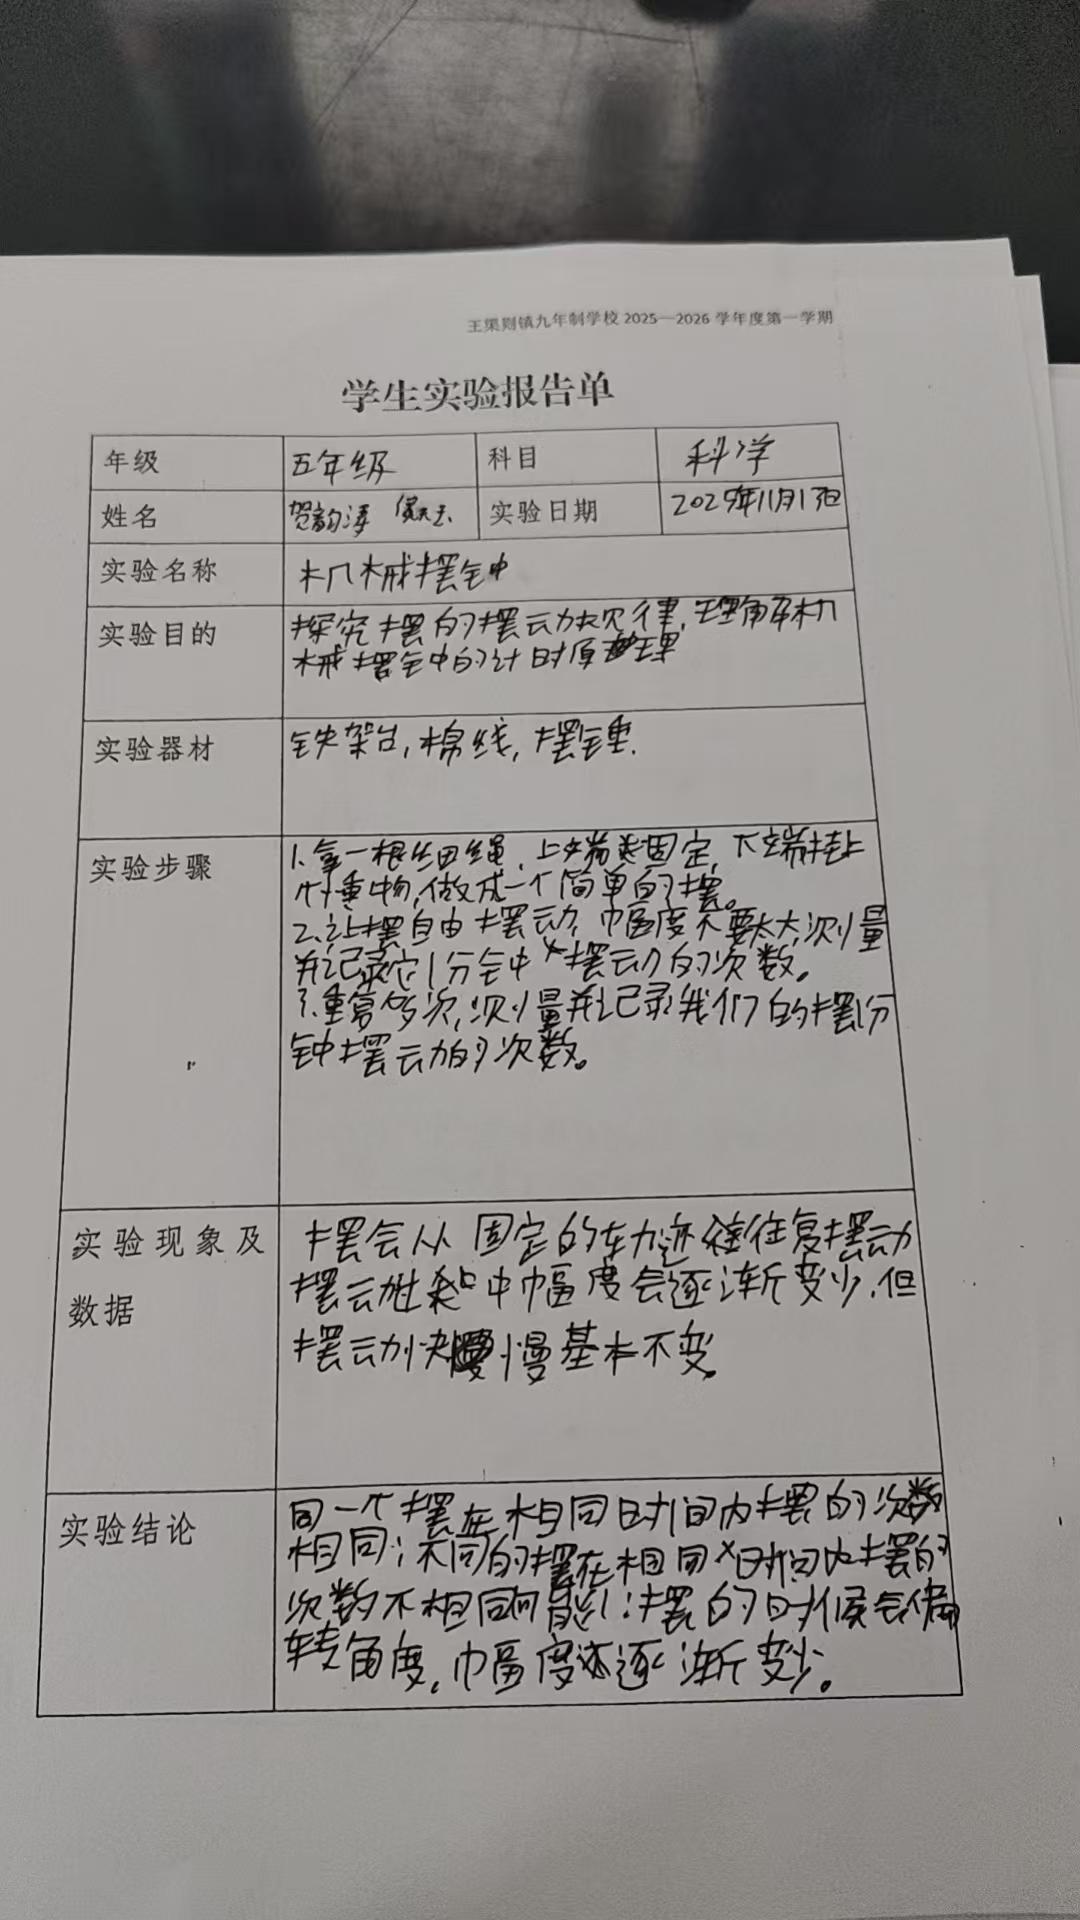 王渠则镇九年制学校 2025—2026 学年度第一学期
学生实验报告单
年级 五年级 科目 科学
姓名 贺韵涛 实验日期 2025年11月13日
实验名称 机械摆钟
实验目的 探究摆的摆动规律,理解机
械摆钟的计时原理
实验器材 铁架台,棉线,摆锤.
实验步骤 1.拿一根细绳,上端固定,下端挂上
重物,做成一个简单的摆。
2.让摆自由摆动,幅度不要太大,测量
并记录它1分钟摆动的次数。
3.重复多次,测量并记录我们的摆1分
钟摆动的次数。
实验现象及 摆会从固定的轨迹往复摆动
摆动过程中幅度会逐渐变少,但
数据
摆动快慢基本不变。
实验结论 同一个摆在相同时间内摆的次数
相同;不同的摆在相同时间内摆的
次数不相同可能;摆的时候会偏
转角度,幅度逐渐变少。